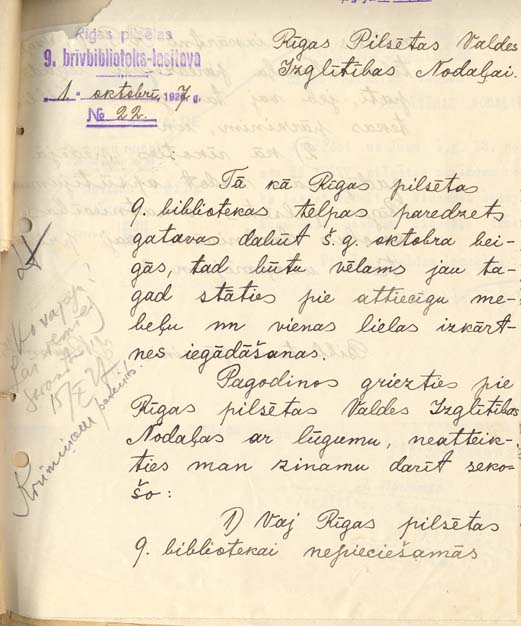 Rīgas pilsētas
9. brīvbibliotēka-lasītava
„1.“ oktobrī, 1927. g.
№ 22.
Rīgas Pilsētas Valdes
Izglītības Nodaļai.
Tā kā Rīgas pilsētas
9. bibliotekas telpas paredzēts
gatavas dabūt š. g. oktobra bei-
gās, tad būtu vēlams jau ta-
gad stāties pie attiecīgu me-
beļu un vienas lielas izkārt-
nes iegādāšanas.
Pagodinos griezties pie
Rīgas pilsētas Valdes Izglītības
Nodaļas ar lūgumu, neatteik-
ties man zinamu darīt seko-
šo:
1) Vaj Rīgas pilsētas
9. bibliotekai nepieciešamās